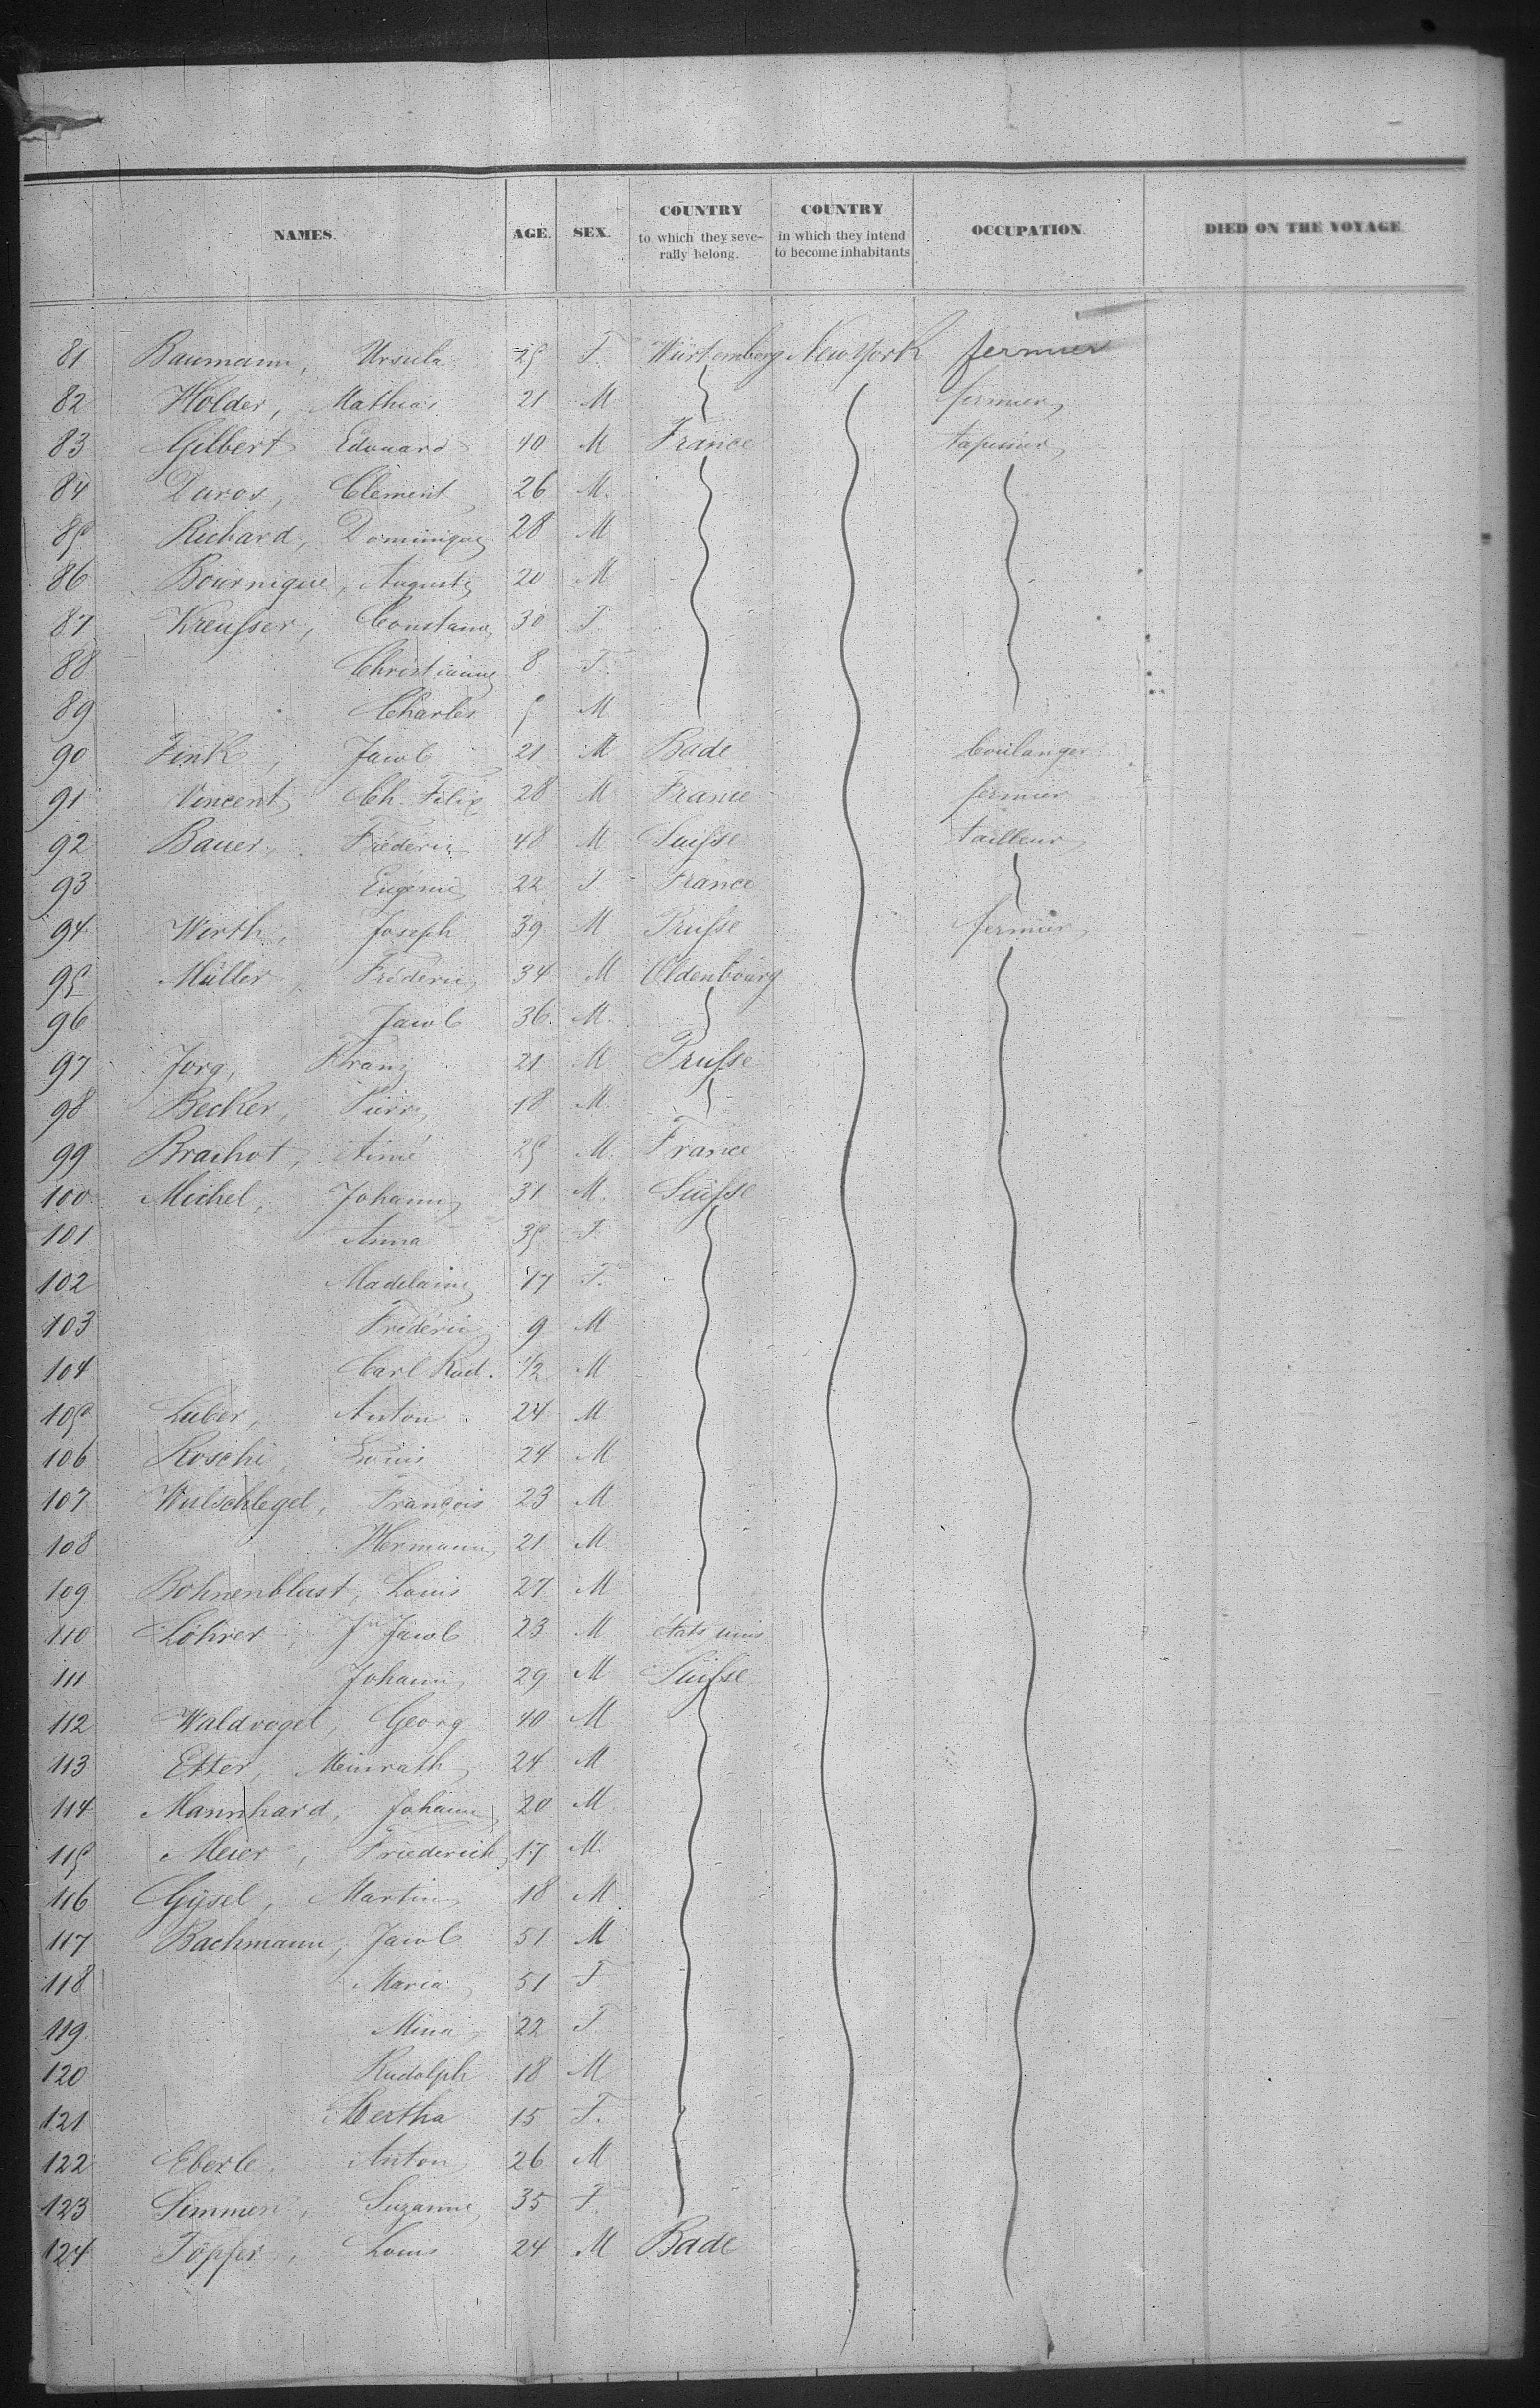 NAMES. AGE. SEX. COUNTRY to which they seve- rally belong. COUNTRY in which they intend to become inhabitants OCCUPATION. DIED ON THE VOYAGE.
81 Baumann, Ursula 25 F. Würtemberg New York fermier
82 Holder, Mathias 21 M fermier
83 Gilbert Edouard 40 M France
84 Duros, Clement 26 M.
85 Richard, Dominique 28 M
86 Bournique, Auguste 20 M
87 Kreusser, Constance 30 F.
88 Christianne 8 F.
89 Charles 5 M
90 Fink, Jacob 21 M Bade boulanger
91 Vincent, Ch. Felix 28 M France fermier
92 Bauer, Fréderic 48 M Suisse tailleur
93 Eugénie 22 F France
94 Wirth, Joseph 39 M Prusse fermier
95 Müller, Fréderic 34 M Oldenbourg
96 Jacob 36 M.
97 Jorg, Franz 21 M Prusse
98 Becker, Pierre 18 M.
99 Brachot, Aimé 25 M. France
100 Michel, Johann 31 M. Suisse
101 Anna 35 F.
102 Madelaine 17 F.
103 Fréderic 9 M
104 Carl Rud. 1/2 M
105 Luber, Anton 24 M
106 Roschi, Louis 24 M
107 Wulschlegel, François 23 M
108 Hermann 21 M
109 Bohnenblust, Louis 27 M
110 Löhrer, Jn Jacob 23 M états unis
111 Johann 29 M Suisse
112 Waldvogel, Georg 40 M
113 Etter, Meinrath 24 M
114 Mannhard, Johann 20 M
115 Meier, Friederich 17 M
116 Gysel, Martin 18 M
117 Bachmann, Jacob 51 M
118 Maria 51 F
119 Mina 22 F
120 Rudolph 18 M
121 Bertha 15 F.
122 Eberle, Anton 26 M
123 Simmen, Suzanne 35 F.
124 Töpfer, Louis 24 M Bade